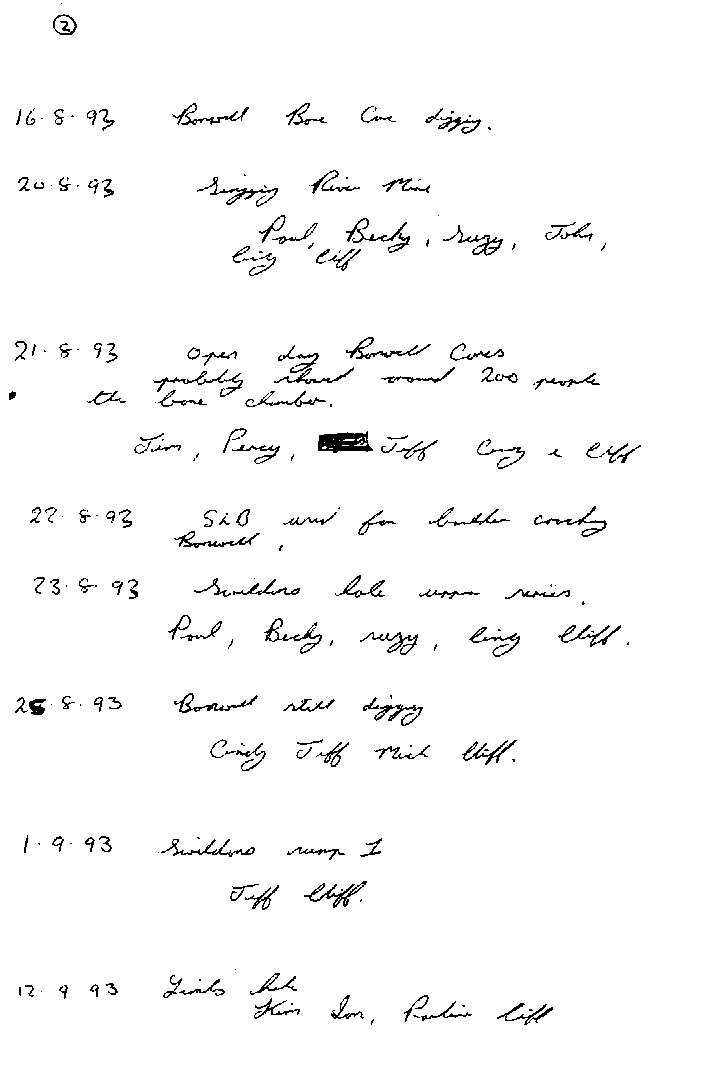 2
16.8.93 Banwell Bone Cave digging.
20.8.93 Singing River Mine
Paul, Becky, Suzy, John,
Cliff
21.8.93 Open day Banwell Caves
probably showed around 200 people
the bone chamber.
Jim, Percy, Jeff Cindy & Cliff
22.8.93 SLB used for boulder
Banwell,
23.8.93 Swildons hole upper series.
Paul, Becky, suzy, Cliff.
25.8.93 Banwell still digging
Cindy Jeff Mick Cliff.
1.9.93 Swildons sump I
Jeff Cliff.
12 9 93 hole
Kim Ian, Pauline Cliff